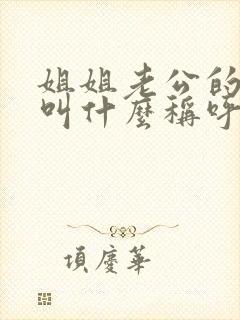 姐姐老公的
叫什麼稱呼
項慶華